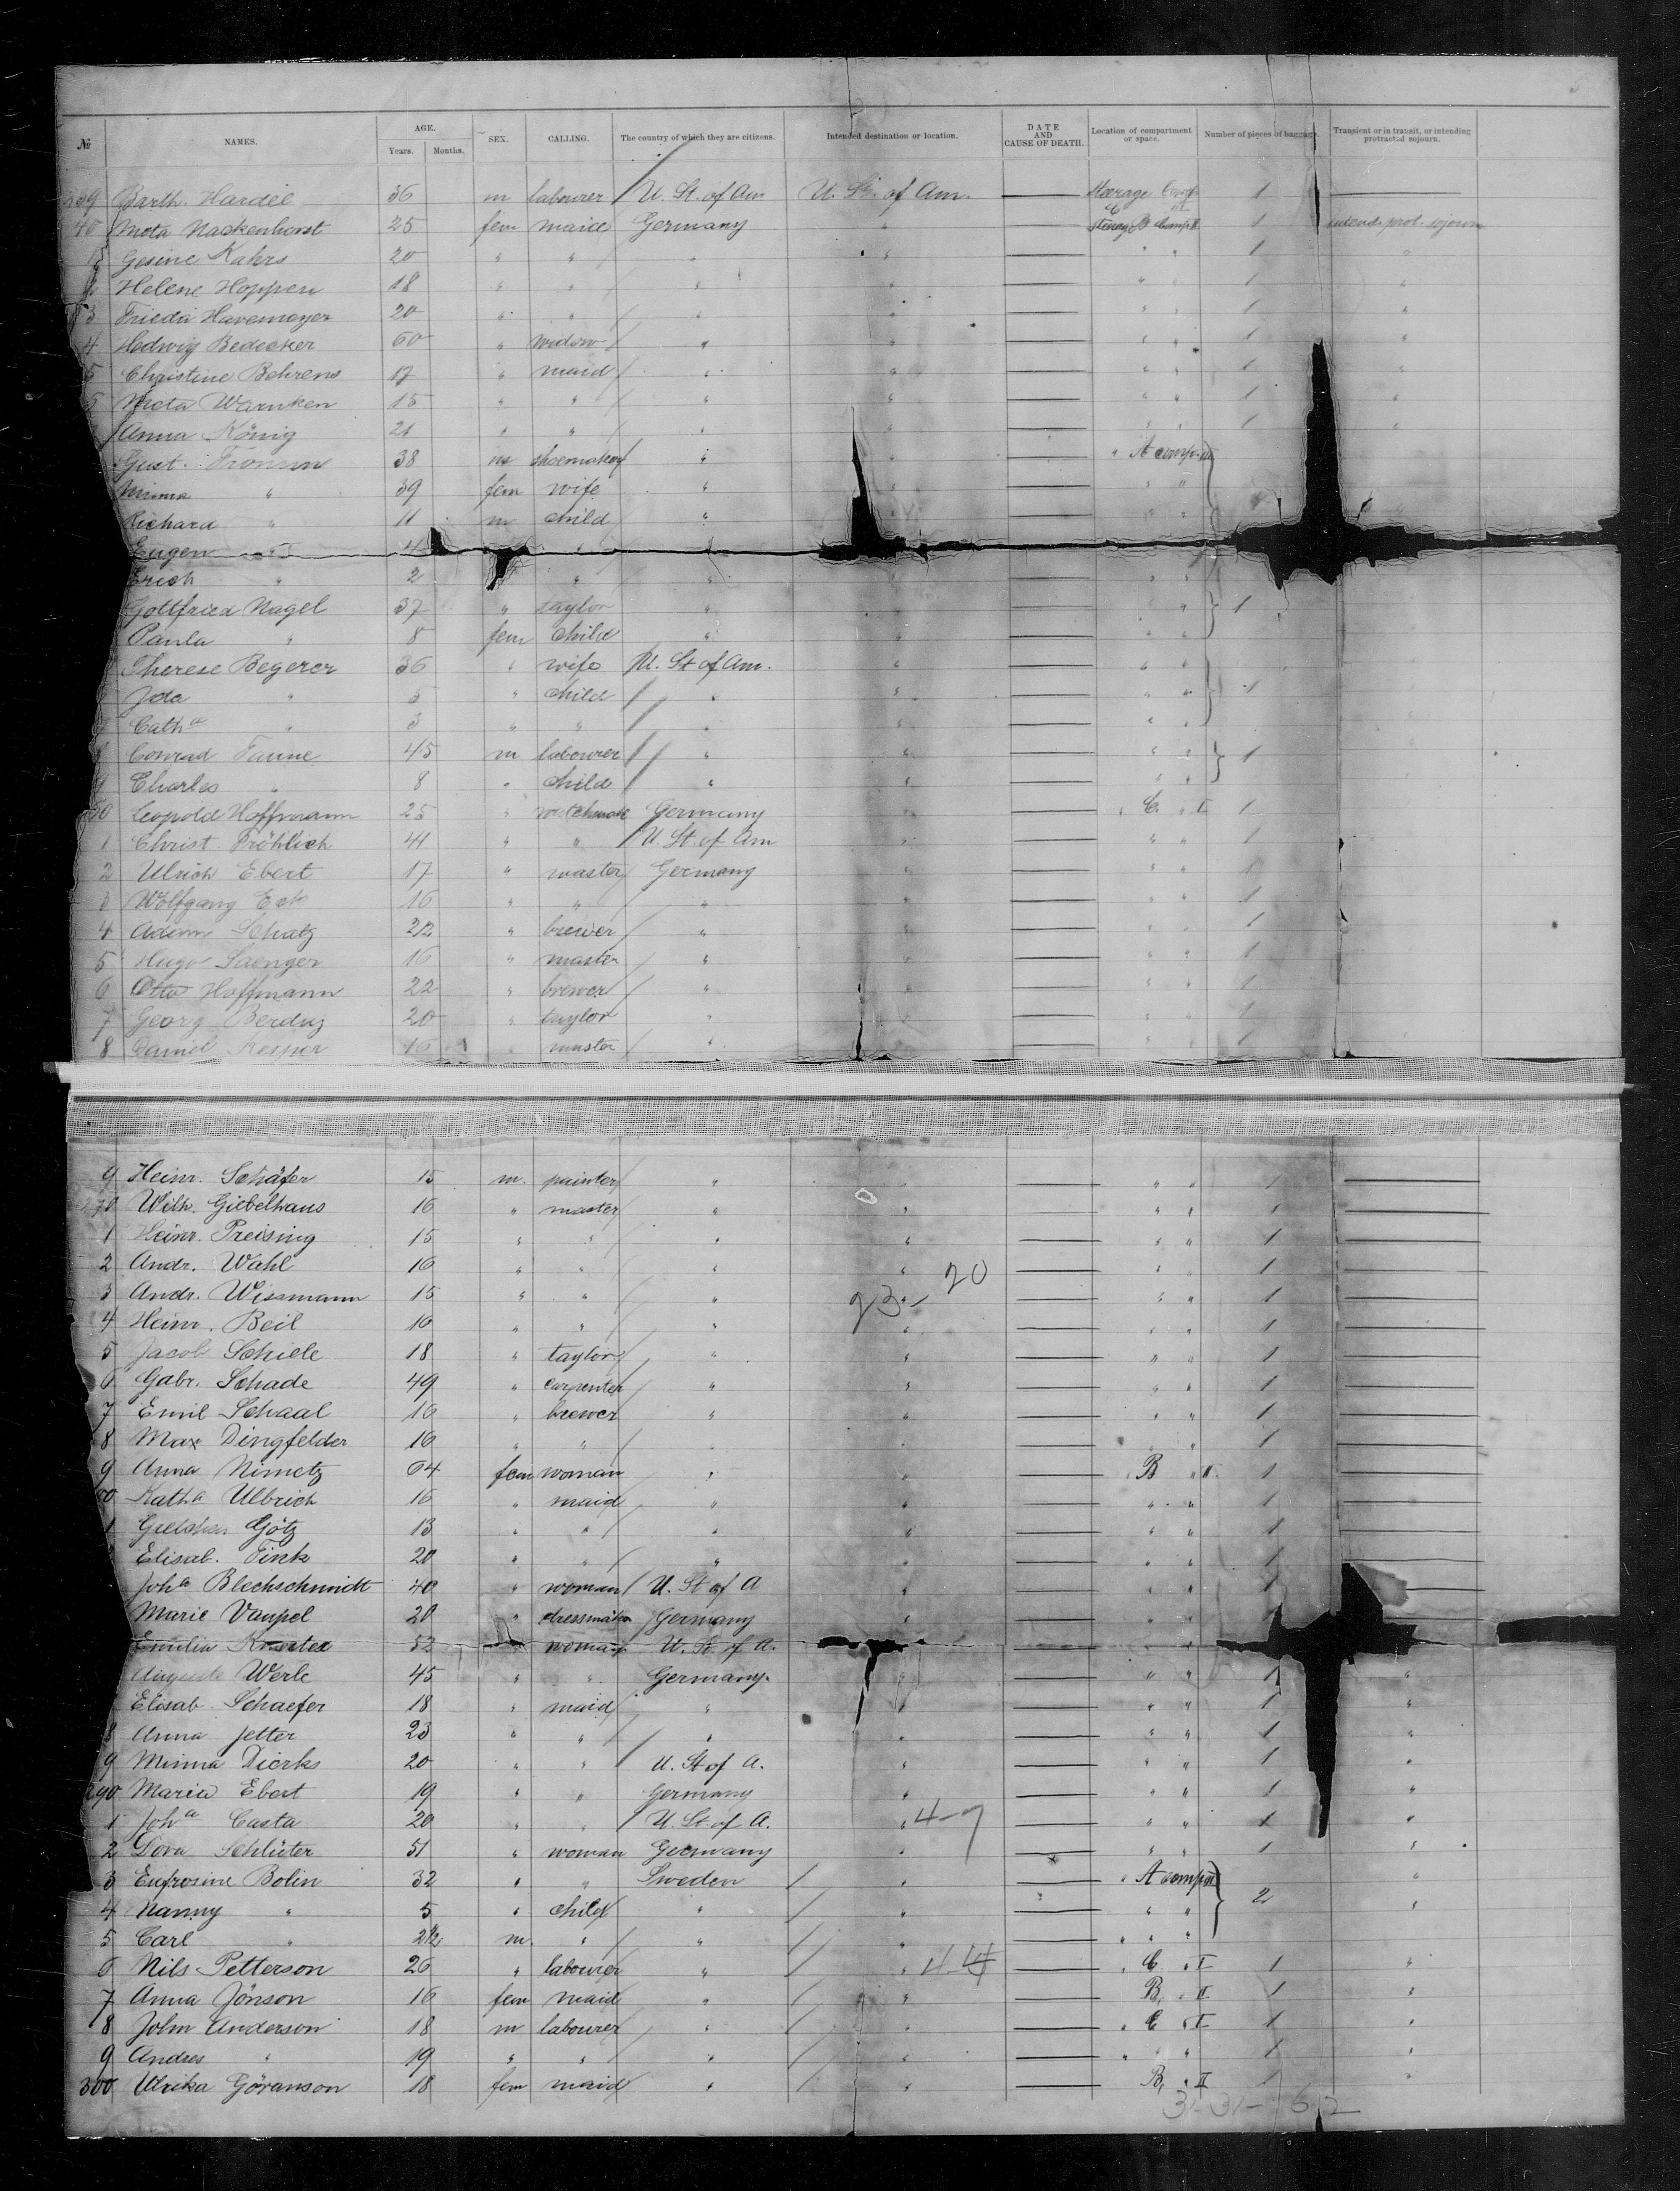 № NAMES. AGE. Years. Months. SEX. CALLING. The country of which they are citizens. Intended destination or location. DATE AND CAUSE OF DEATH. Location of compartment or space. Number of pieces of baggage. Transient or in transit, or intending protracted sojourn.
39 Barth. Hardie 36 m labourer U. St. of Am U. St. of Am. Steerage 1
40 Meta Nackenhorst 25 fem maid Germany " B Comp II 1 intend. prot. sojourn
Gesine Kahrs 20 " " " " " " 1 "
2 Helene Hoppen 18 " " " " " " 1 "
3 Frieda Havemeyer 20 " " " " " " 1 "
4 Hedwig Bedecker 60 " widow " " " " 1 "
5 Christine Behrens 17 " maid " " " " 1 "
Meta Warnken 15 " " " " " " 1 "
Anna König 21 " " " " " " 1 "
Gust. 38 m shoemaker " " " A comp.
Minna " 39 fem wife " " " "
Richard " 11 m child " " " "
Eugen 4 " "
Erich " 2 " " " "
Gottfried Nagel 37 " taylor " " " 1
Paula " 8 fem child " " " "
Therese Begerer 36 " wife U. St of Am. " " "
Ida " 5 " child " " " " 1
Cath a " 3 " " " " " "
8 Conrad Faune 45 m labourer " " " " 1
9 Charles " 8 " child " " " "
50 Leopold Hoffmann 25 " Germany " " C. " I 1
1 Christ. Fröhlich 41 " " U. St. of Am " " " 1
2 Ulrich Ebert 17 " master Germany " " " 1
3 Wolfgang Eck 16 " " " " " " 1
4 Adam Schatz 22 " brewer " " " " 1
5 Hugo Saenger 16 " master " " " " 1
6 Otto Hoffmann 22 " brewer " " " " 1
7 Georg 20 " taylor " " " " 1
8 Daniel Kesper 16 " master " " " " 1
9 Heinr. Schäfer 15 m. painter " " " " 1
270 Wilh. Giebelhaus 16 " master " " " " 1
1 Heinr. Preising 15 " " " " " " 1
2 Andr. Wahl 16 " " " " 20 " " 1
3 Andr. Wissmann 15 " " " " 23- " " 1
4 Heinr. Beil 16 " " " " " " 1
5 Jacob Schiele 18 " taylor " " " " 1
6 Gabr. Schade 49 " carpenter " " " " 1
7 Emil Schaal 16 " brewer " " " " 1
8 Max Dingfelder 16 " " " " " " 1
9 Anna Nimetz 64 fem woman " " " B " II 1
80 Kath a Ulbrich 16 " maid " " " " 1
1 Gretchen Götz 13 " " " " " " 1
Elisab. Fink 20 " " " " " " 1
Joh a Blechschmidt 40 " woman U. St of A " " " 1
Marie Vaupel 20 " dressmaker Germany " " " 1
Emilia 52 woman U. St. of A. " "
Auguste Werle 45 " " Germany. " " " 1 "
Elisab. Schaefer 18 " maid " " " " 1 "
8 Anna Jetter 23 " " " " " " 1 "
9 Minna Dierks 20 " " U. St of A. " " " 1 "
290 Maria Ebert 19 " " Germany " " " 1 "
1 Joh a Casta 20 " " U. St. of A. " 4-7 " " 1 "
2 Dora Schlüter 51 " woman Germany " " " 1 "
3 Eufrosine Bolin 32 " " Sweden " " A comp II "
4 Nanny " 5 " child " " " " 2 "
5 Carl " 2½ m. " " " " " "
6 Nils Petterson 26 " labourer " " " C. " I 1 "
7 Anna Jönson 16 fem maid " " B, " II 1 "
8 John Anderson 18 m labourer " " " C " I 1 "
9 Andres " 19 " " " " " " " 1 "
300 Ulrika Göranson 18 fem maid " " B, " II 1 "
31-31- 62